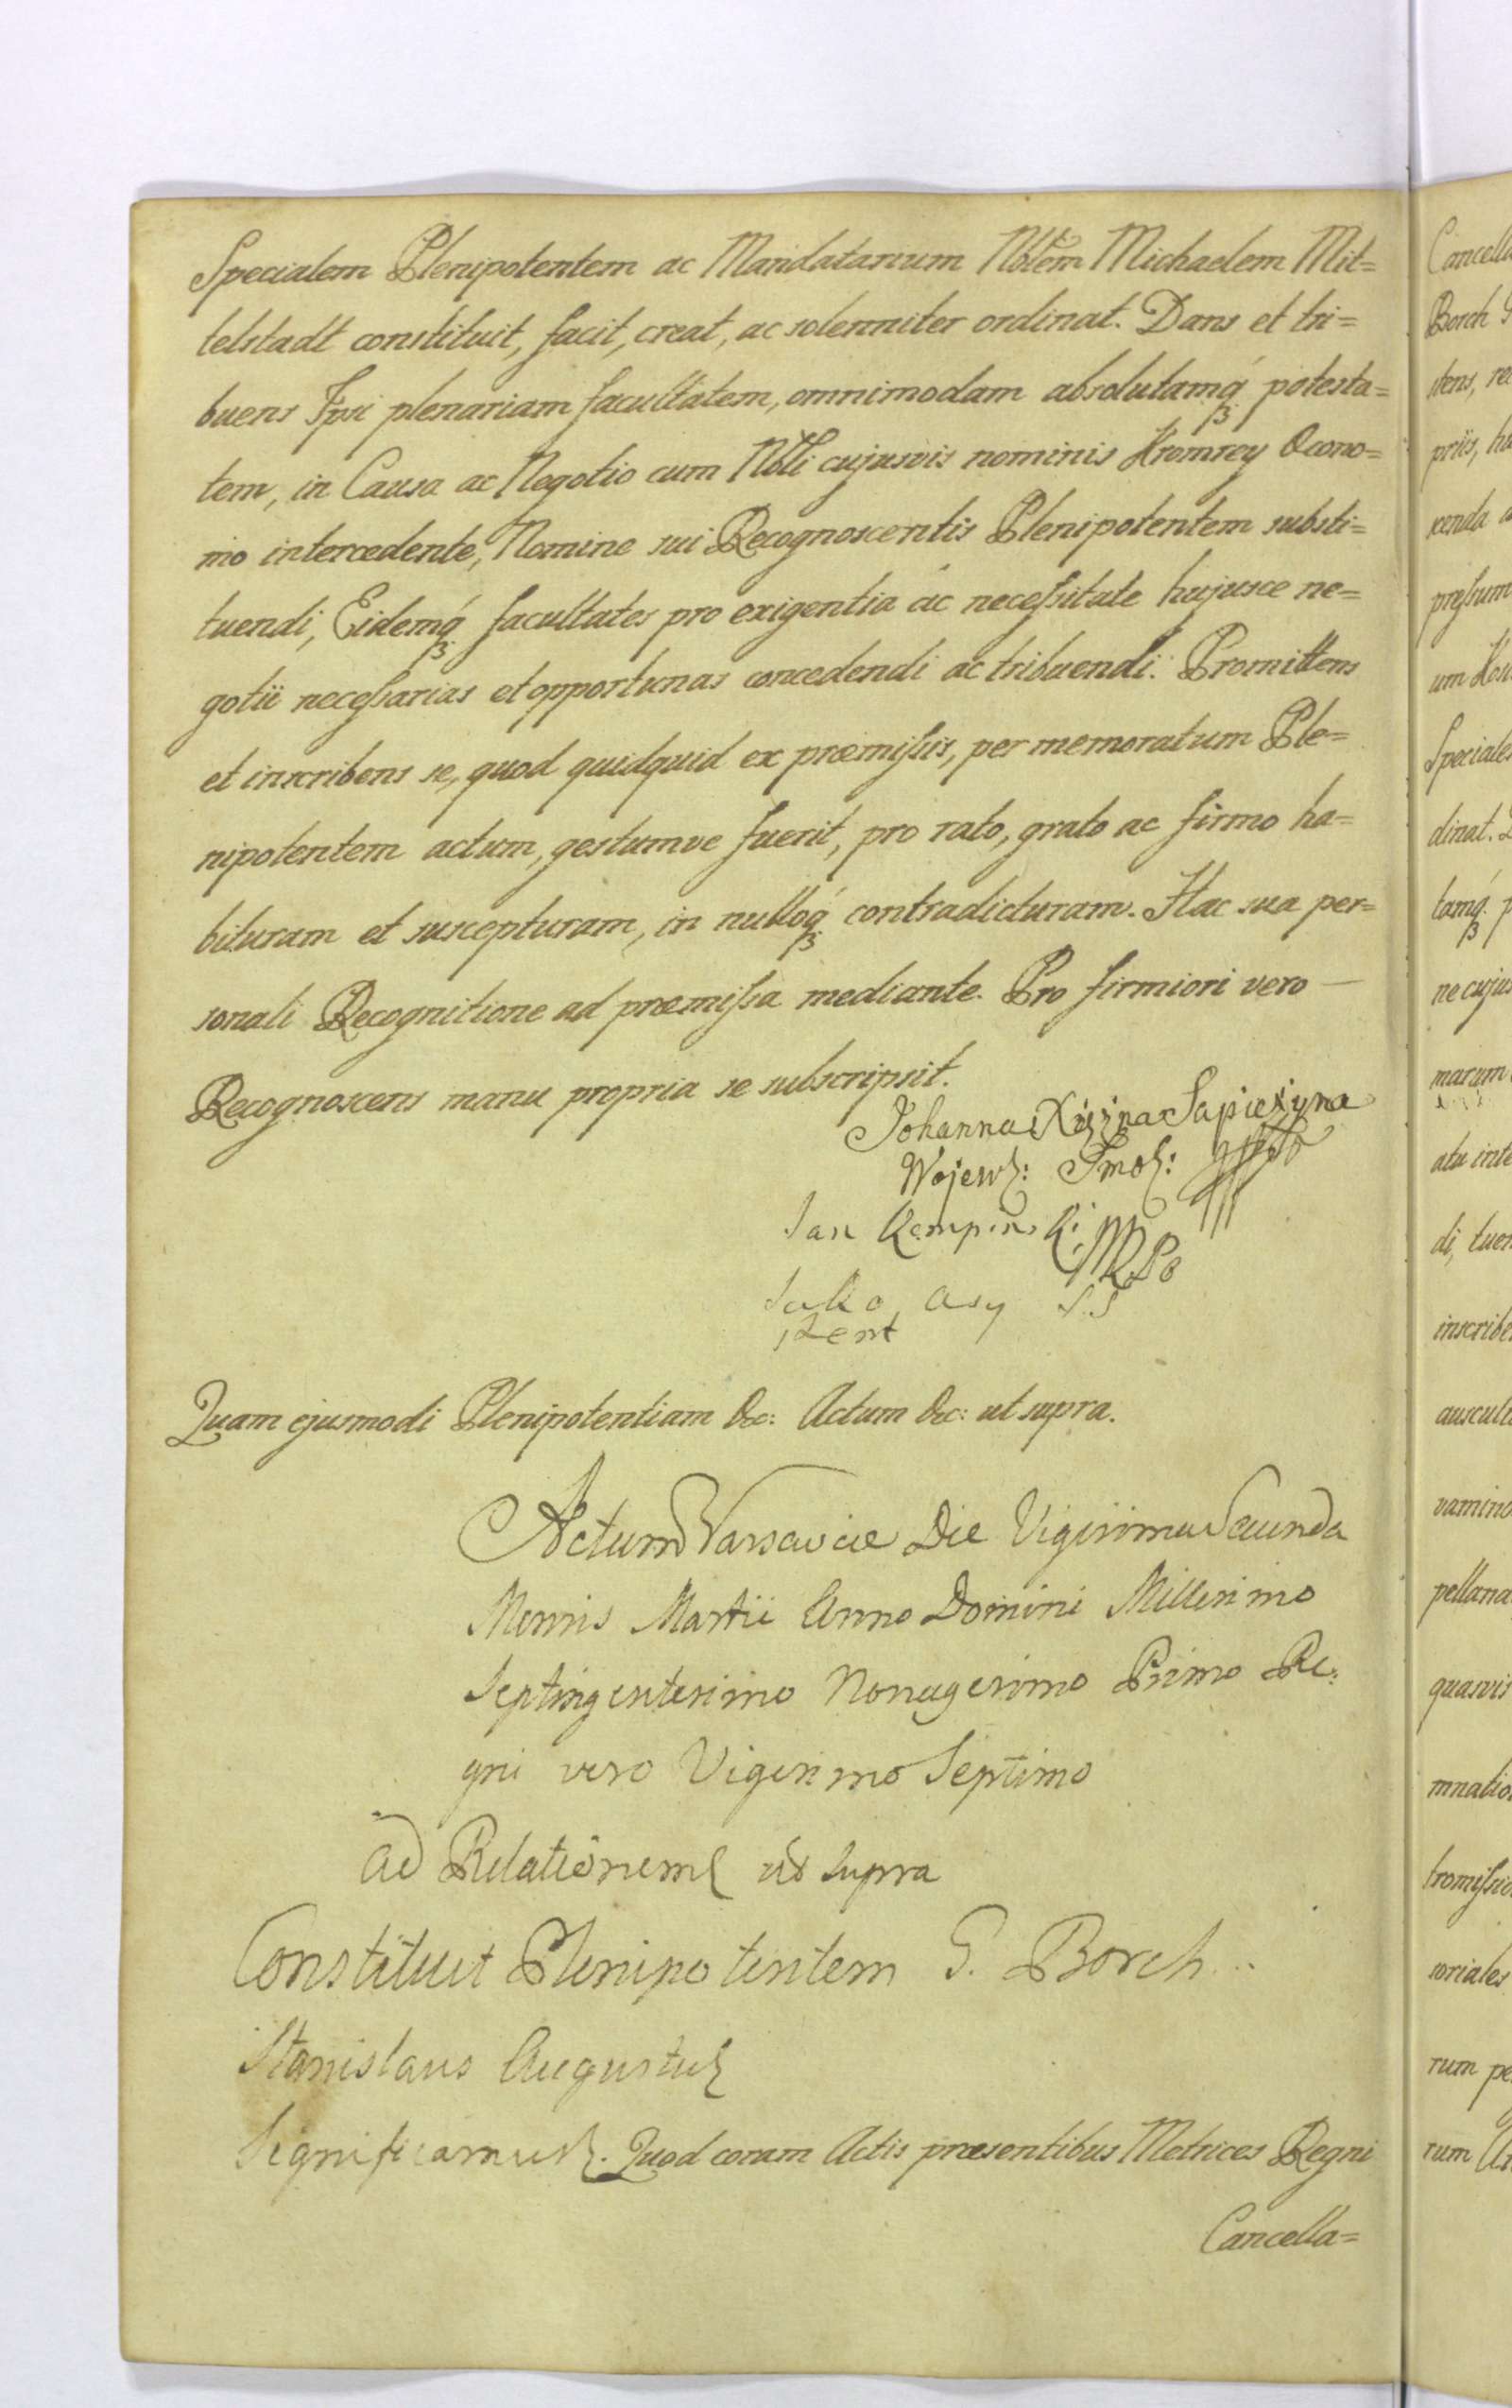 Specialem Plenipotentem ac Mandatarium Nbtem Michaelem Mit=
telstadt constituit, facit, creat, ac solenniter ordinat. Dans et tri=
buens Ipsi plenariam facultatem, omnimodam absolutamq́ꝫ potesta=
tem, in Causa ac Negotio cum Nbli cujusvis nominis Kromrey Œcono=
mo intercedente, Nomine sui Recognoscentis Plenipotentem substi=
tuendi, Eidemq́ꝫ facultates pro exigentia ac neceſsitate hujusce ne=
gotii neceſsarias et opportunas concedendi ac tribuendi. Promittens
et inscribens se, quod quidquid ex præmiſsis, per memoratum Ple=
nipotentem actum, gestumve fuerit, pro rato, grato ac firmo ha=
bituram et suscepturam, in nulloq́ꝫ contradicturam. Hac sua per=
sonali Recognitione ad præmiſsa mediante. Pro firmiori vero —
Recognoscens manu propria se subscripsit.
Johanna Xiężna Sapieżyna
Wojew: Smol:
Jan Kempinski
Jako Asy
stent
Quam ejusmodi Plenipotentiam &c: Actum &c: ut supra.
Actum Varsaviae Die Vigesima Secunda
Mensis Martii Anno Domini Millesimo
Septingentesimo Nonagesimo Primo Re:
gni vero Vigesimo Septimo
Ad Relationem ut supra
Constituit Plenipotentem G. Borch..
Stanislaus Augustus
Significamus. Quod coram Actis præsentibus Metrices Regni
Cancella=
Cancella
Borch
priis,
dinat.
marum
quasvis
soriales
rum